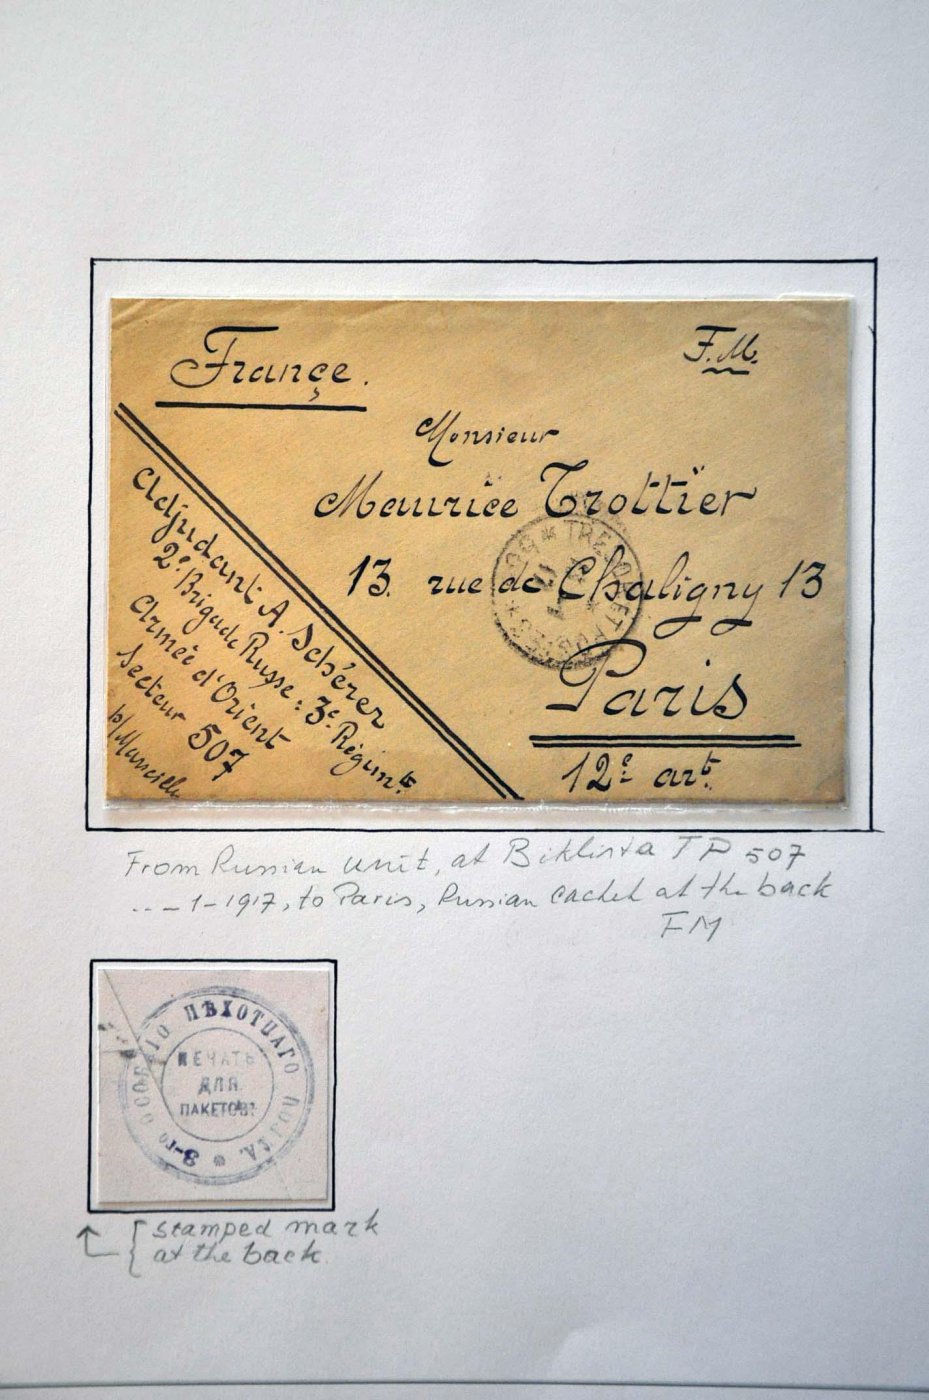 Françe.
F.M.
Monsieur
Mauriće Trottïer
13. rue de Chaligny 13
Paris
12e art.
Adjudant A. Schérer
2e Brigade Russe: 3e Régimt.
Armée d'Orient
Secteur 507
p/ Marseille
* TRESOR ET POSTES * 507
From Russian unit, at Biklista TP 507
..-1-1917, to Paris, Russian cachet at the back
FM
3-го ОСОБАГО ПѢХОТНАГО ПОЛКА. *
ПЕЧАТЬ
ДЛЯ
ПАКЕТОВЪ
stamped mark
at the back